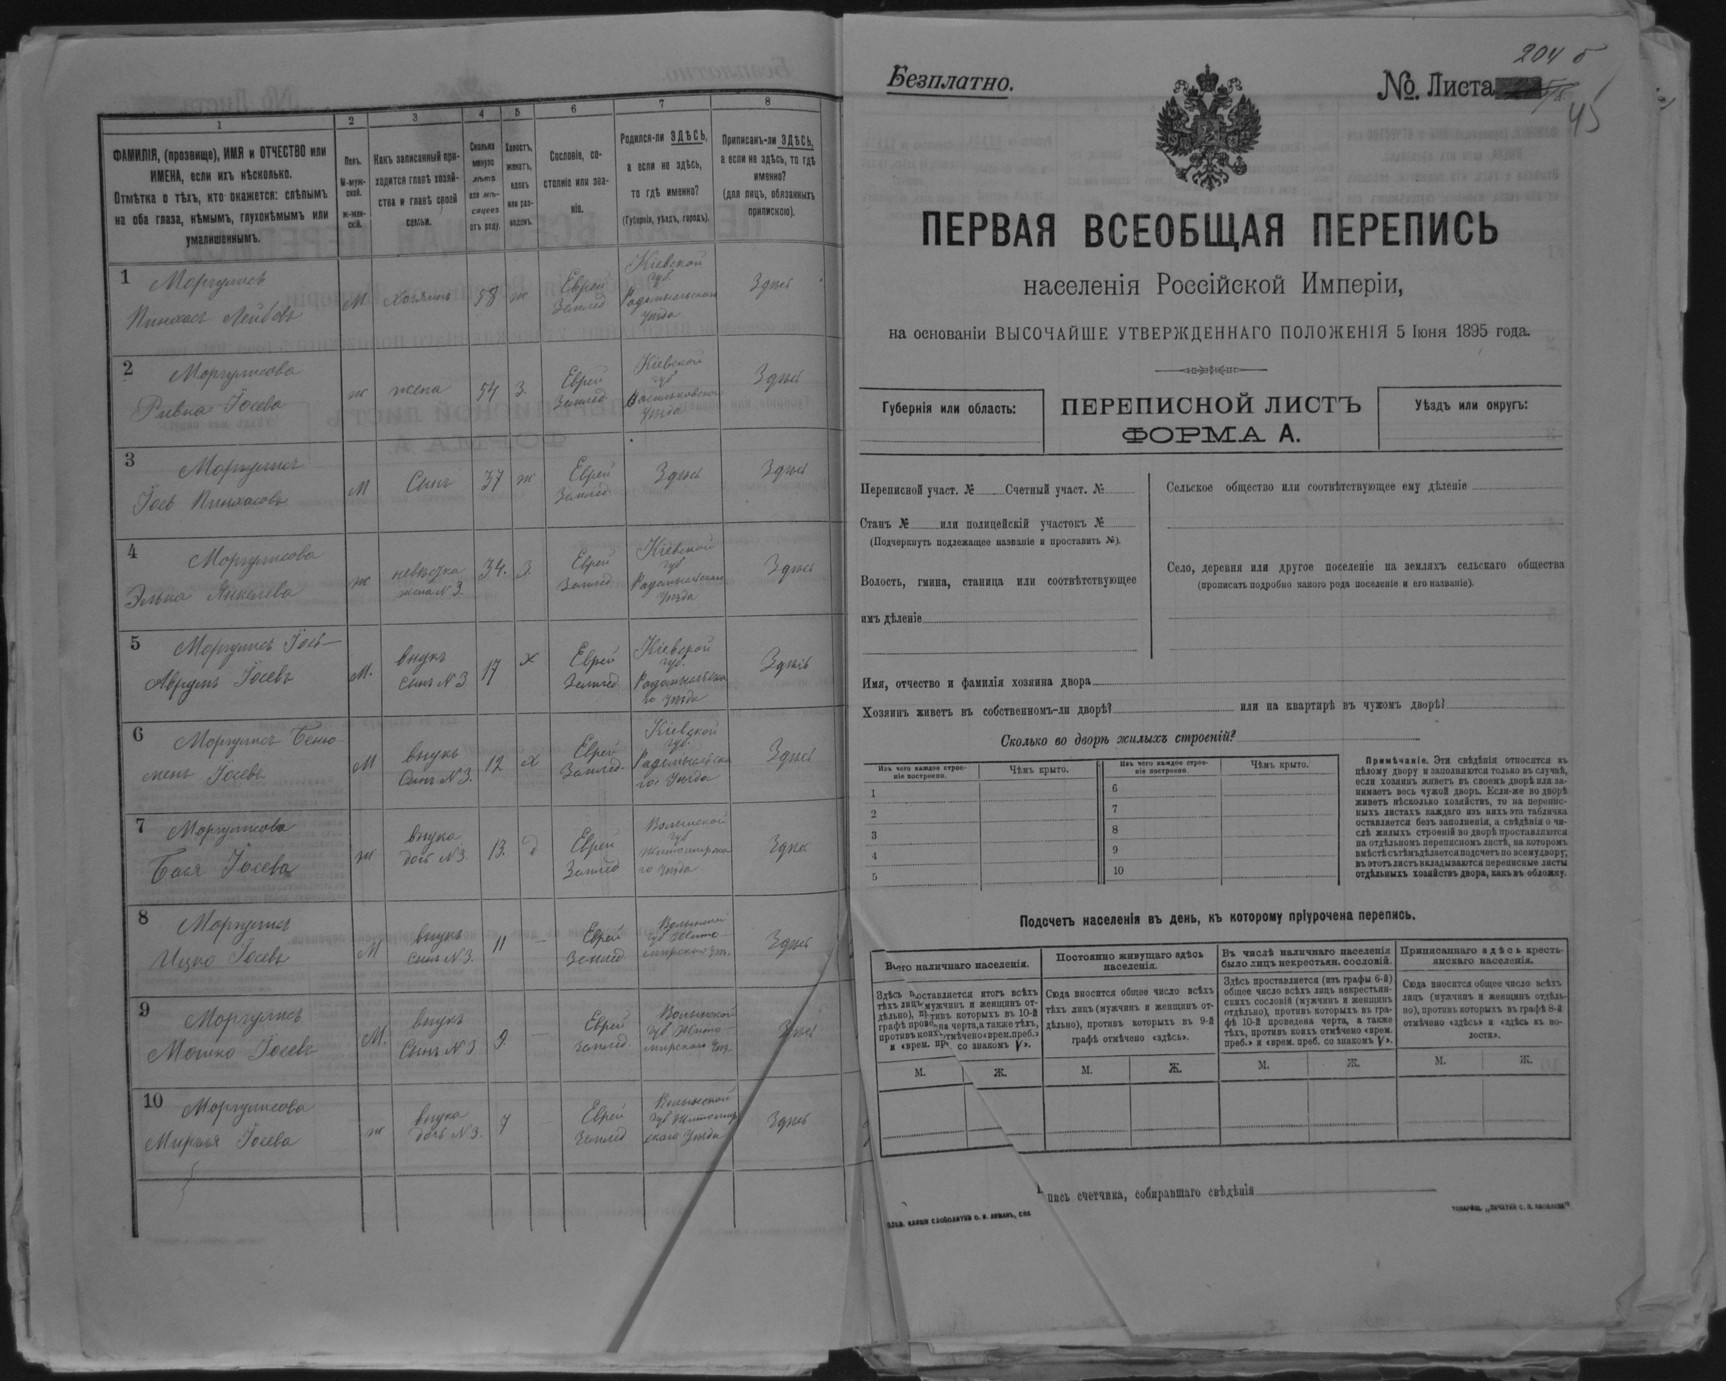 1
2
3
4
5
6
7
8
ФАМИЛІЯ, (прозвище), ИМЯ и ОТЧЕСТВО или
ИМЕНА, если ихъ нѣсколько.
Отмѣтка о тѣхъ, кто окажется: слѣпымъ
на оба глаза, нѣмымъ, глухонѣмымъ или
умалишеннымъ.
Полъ.
М-муж-
ской.
Ж-жен-
скій.
Какъ записанный при-
ходится главѣ хозяй-
ства и главѣ своей
семьи.
Сколько
минуло
лѣтъ
или мѣ-
сяцевъ
отъ роду.
Холостъ,
женатъ,
вдовъ
или раз-
веденъ.
Сословіе, со-
стояніе или зва-
ніе.
Родился-ли ЗДѢСЬ,
а если не здѣсь,
то гдѣ именно?
(Губернія, уѣздъ, городъ).
Приписанъ-ли ЗДѢСЬ,
а если не здѣсь, то гдѣ
именно?
(для лицъ, обязанныхъ
припискою).
1 Моргулисъ
Пинхасъ Лейбовъ
М
Хозяинъ
58
ж
Еврей
Землед
Кіевской
губ.
Радомысльскаго
Уѣзда
Здѣсь
2 Моргулисова
Ривка Іосева
ж
жена
54
З
Еврей
Землед
Кіевской
губ
Васильковскаго
Уѣзда
Здѣсь
3 Моргулисъ
Іось Пинхасовъ
М
Сынъ
37
ж
Еврей
Землед
Здѣсь
Здѣсь
4 Моргулисова
Элька Янкелева
ж
невѣстка
жена N 3
34.
З.
Еврей
Землед
Кіевской
губ
Радомысльскаго
Уѣзда
Здѣсь
5 Моргулисъ Іось-
Аврумъ Іосевъ
М.
внукъ
сынъ N 3
17
Х
Еврей
Землед
Кіевской
губ.
Радомысльска
го Уѣзда
Здѣсь
6 Моргулисъ Беню-
менъ Іосевъ
М
внукъ
Сынъ N 3.
12
Х
Еврей
Землед.
Кіевской
губ.
Радомысльска
го Уѣзда
Здѣсь
7 Моргулисова
Бася Іосева
ж
внука
дочь N 3.
13.
д
Еврей
Землед
Волынской
губ
Житомирска
го Уѣзда
Здѣсь
8 Моргулисъ
Ицко Іосевъ
М
внукъ
сынъ N 3.
11
-
Еврей
Землед
Волынской
губ Жито-
мирскаго Уѣз.
Здѣсь
9 Моргулисъ
Мошко Іосевъ
М.
внукъ
Сынъ N 3
9.
Еврей
Землед.
Волынской
губ. Жито-
мирскаго Уѣз
Здѣсь
10 Моргулисова
Мирля Іосева
ж
внука
дочь N 3.
7
Еврей
Землед
Волынской
губ Житомир
скаго Уѣзда
Здѣсь
204 б
Безплатно.
№. Листа
45
ПЕРВАЯ ВСЕОБЩАЯ ПЕРЕПИСЬ
населенія Россійской Имперіи,
на основаніи ВЫСОЧАЙШЕ УТВЕРЖДЕННАГО ПОЛОЖЕНІЯ 5 Іюня 1895 года.
Губернія или область:
ПЕРЕПИСНОЙ ЛИСТЪ
ФОРМА А.
Уѣздъ или округъ:
Переписной участ. № Счетный участ. №
Станъ № или полицейскій участокъ №
(Подчеркнуть подлежащее названіе и проставить №).
Волость, гмина, станица или соотвѣтствующее
имъ дѣленіе
Сельское общество или соотвѣтствующее ему дѣленіе
Село, деревня или другое поселеніе на земляхъ сельскаго общества
(прописать подробно какого рода поселеніе и его названіе).
Имя, отчество и фамилія хозяина двора
Хозяинъ живетъ въ собственномъ-ли дворѣ? или на квартирѣ въ чужомъ дворѣ?
Сколько во дворѣ жилыхъ строеній?
Изъ чего каждое строе-
ніе построено.
Чѣмъ крыто.
Изъ чего каждое строе-
ніе построено.
Чѣмъ крыто.
1
2
3
4
5
6
7
8
9
10
Примѣчаніе. Эти свѣдѣнія относятся къ
цѣлому двору и заполняются только въ случаѣ,
если хозяинъ живетъ въ своемъ дворѣ или за-
нимаетъ весь чужой дворъ. Если-же во дворѣ
живетъ нѣсколько хозяйствъ, то на перепис-
ныхъ листахъ каждаго изъ нихъ эта табличка
оставляется безъ заполненія, а свѣдѣнія о чи-
слѣ жилыхъ строеній во дворѣ проставляются
на отдѣльномъ переписномъ листѣ, на которомъ
вмѣстѣ съ тѣмъ дѣлается подсчетъ по всему двору;
въ этотъ листъ вкладываются переписные листы
отдѣльныхъ хозяйствъ двора, какъ въ обложку.
Подсчетъ населенія въ день, къ которому пріурочена перепись.
Всего наличнаго населенія.
Постоянно живущаго здѣсь
населенія.
Въ числѣ наличнаго населенія
было лицъ некрестьян. сословій.
Приписаннаго здѣсь кресть-
янскаго населенія.
Здѣсь проставляется итогъ всѣхъ
тѣхъ лицъ (мужчинъ и женщинъ от-
дѣльно), противъ которыхъ въ 10-й
графѣ проведена черта, а также тѣхъ,
противъ коихъ отмѣчено «врем. преб.»
и «врем. пр. со знакомъ V».
Сюда вносится общее число всѣхъ
тѣхъ лицъ (мужчинъ и женщинъ от-
дѣльно), противъ которыхъ въ 9-й
графѣ отмѣчено «здѣсь».
Здѣсь проставляется (изъ графы 6-й)
общее число всѣхъ лицъ некрестьян-
скихъ сословій (мужчинъ и женщинъ
отдѣльно), противъ которыхъ въ гра-
фѣ 10-й проведена черта, а также
тѣхъ, противъ коихъ отмѣчено «врем.
преб.» и «врем. преб. со знакомъ V».
Сюда вносится общее число всѣхъ
лицъ (мужчинъ и женщинъ отдѣль-
но), противъ которыхъ въ графѣ 8-й
отмѣчено «здѣсь» и «здѣсь въ во-
лости».
М.
Ж.
М.
Ж.
М.
Ж.
М.
Ж.
пись счетчика, собиравшаго свѣдѣнія